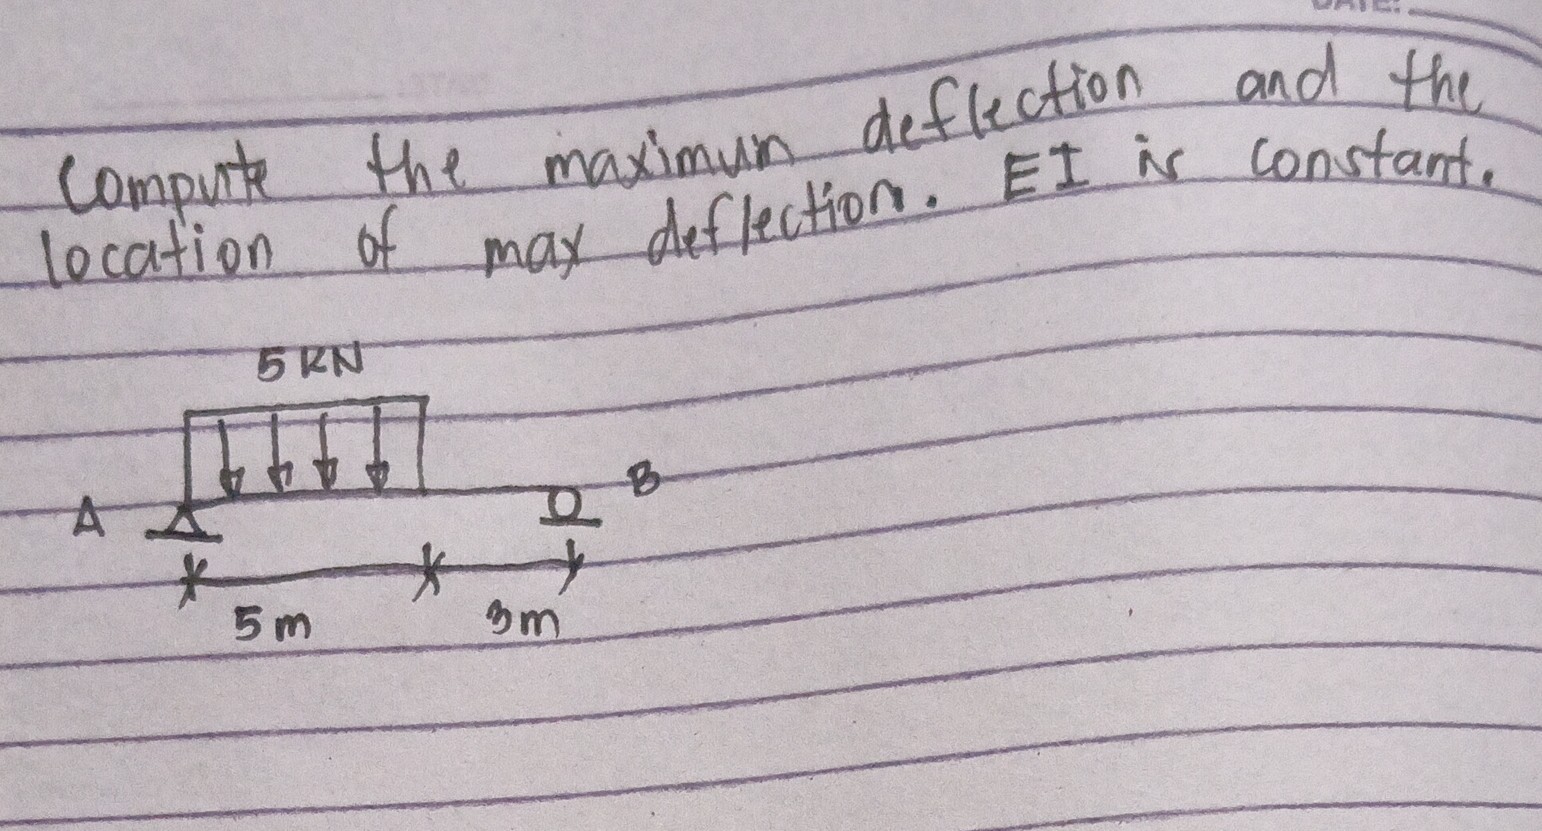 Compute the maximum deflection and the
location of max deflection. EI is constant.
5 KN
A
B
5 m
3m